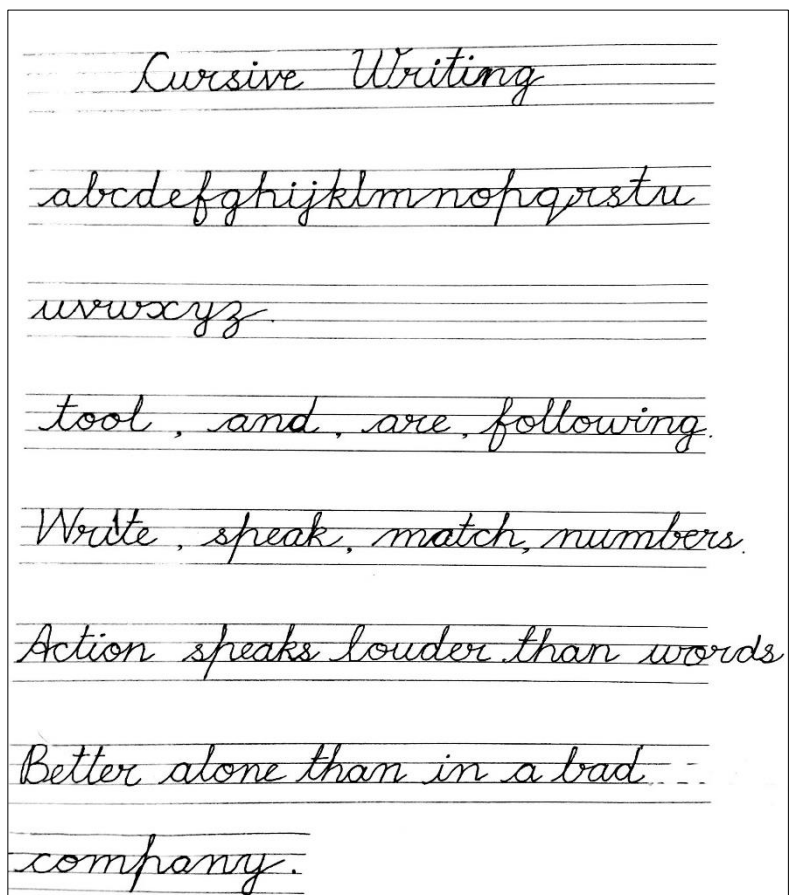 Cursive Writing
abcdefghijklmnopqrstu
uvwxyz.
tool, and, are, following.
Write, speak, match, numbers.
Action speaks louder than words
Better alone than in a bad
company.